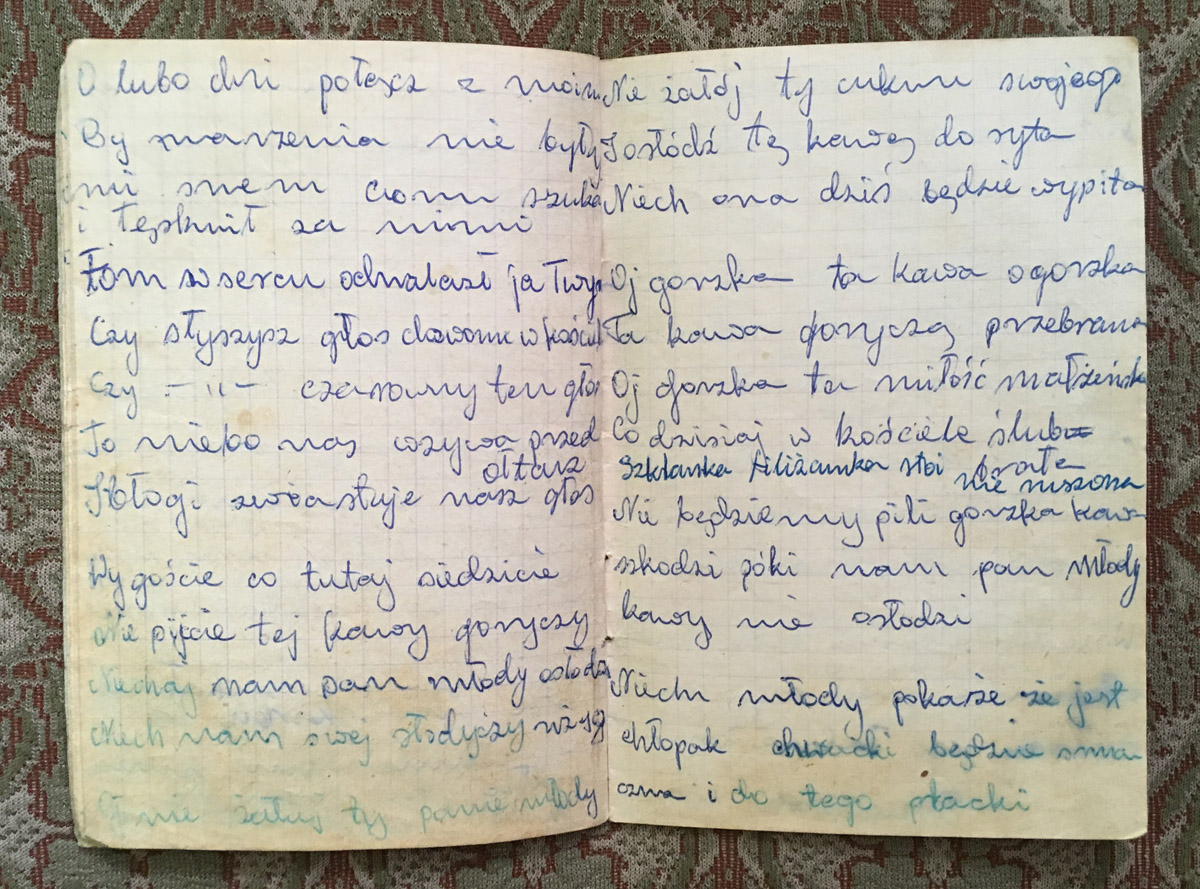 O lubo dni połącz z moim
By marzenia nie były
mi snem com szuka
i tęsknił za nimi
Tom w sercu odnalazł ja Twy
Czy słyszysz głos dzwonu w kościel
Czy — " — czarowny ten głos
To niebo nas wzywa przed
ołtarz
I błogi zwiastuje nasz głos
Wy goście co tutaj siedzicie
Nie pijcie tej kawy goryczy
Niechaj nam pan młody osłodzi
Niech nam swej słodyczy
nie żałuj ty panie młody
Nie żałój ty cukru swojego
I osłódź tę kawę do syta
Niech ona dziś będzie wypita
Oj gorzka ta kawa o gorzka
Ta kawa goryczą przebrana
Oj gorzka ta miłość małżeńska
Co dzisiaj w kościele ślub
brała
Szklanka filiżanka stoi
nie ruszona
Nie będziemy pili gorzka kawa
szkodzi póki nam pan młody
kawy nie osłodzi
Niech młody pokaże że jest
chłopak chwacki będzie sma
czna i do tego placki